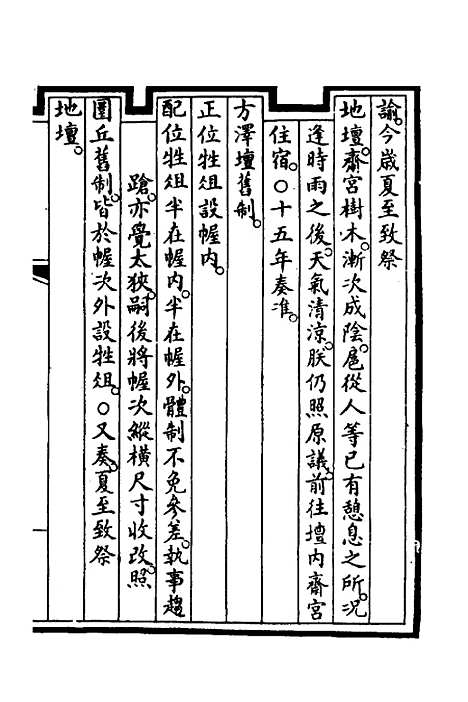 諭。今歲夏至致祭
地壇。齋宮樹木。漸次成陰。扈從人等已有憩息之所。況
逢時雨之後。天氣清涼。朕仍照原議。前往壇內齋宮
住宿。○十五年奏准。
方澤壇舊制。
正位牲俎設幄內。
配位牲俎半在幄內。半在幄外。體制不免參差。執事趨
蹌。亦覺太狹。嗣後將幄次縱橫尺寸收改。照
圜丘舊制。皆於幄次外設牲俎。○又奏。夏至致祭
地壇。